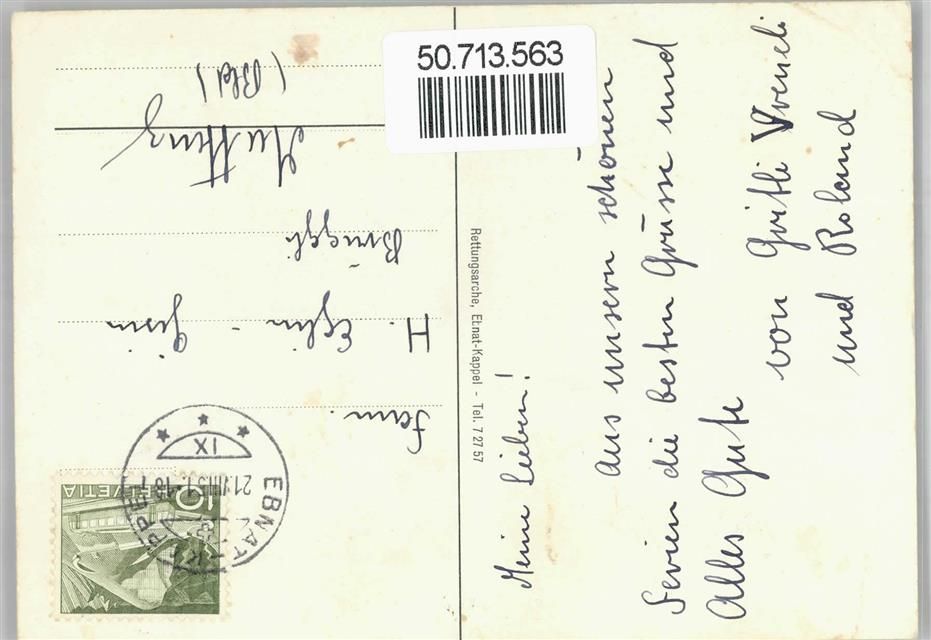 Meine Lieben!
Aus unsern schönen
Serien die besten Grüsse und
Alles Gute
von Gritli Vreneli
und Roland
Rettungsarche, Ebnat-Kappel - Tel. 7 27 57
Fam.
H. Eglin - Gysin
Brüggli
Muttenz
(Bld)
HELVETIA 10
EBNAT-KAPPEL
21.VIII.51.-18
IX
50.713.563